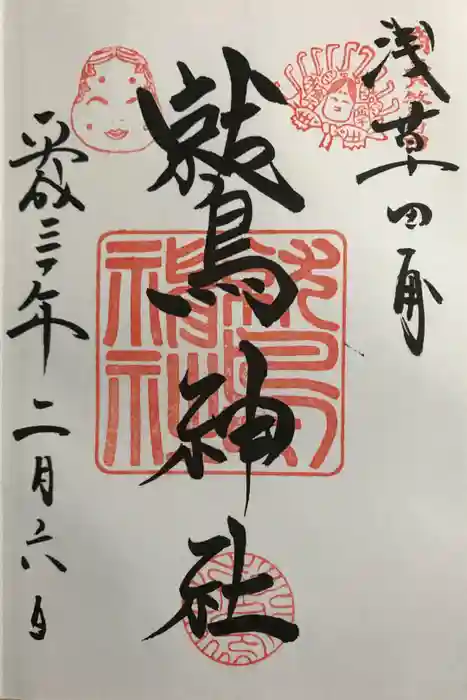 浅草田甫
鷲神社
平成三十年二月六日